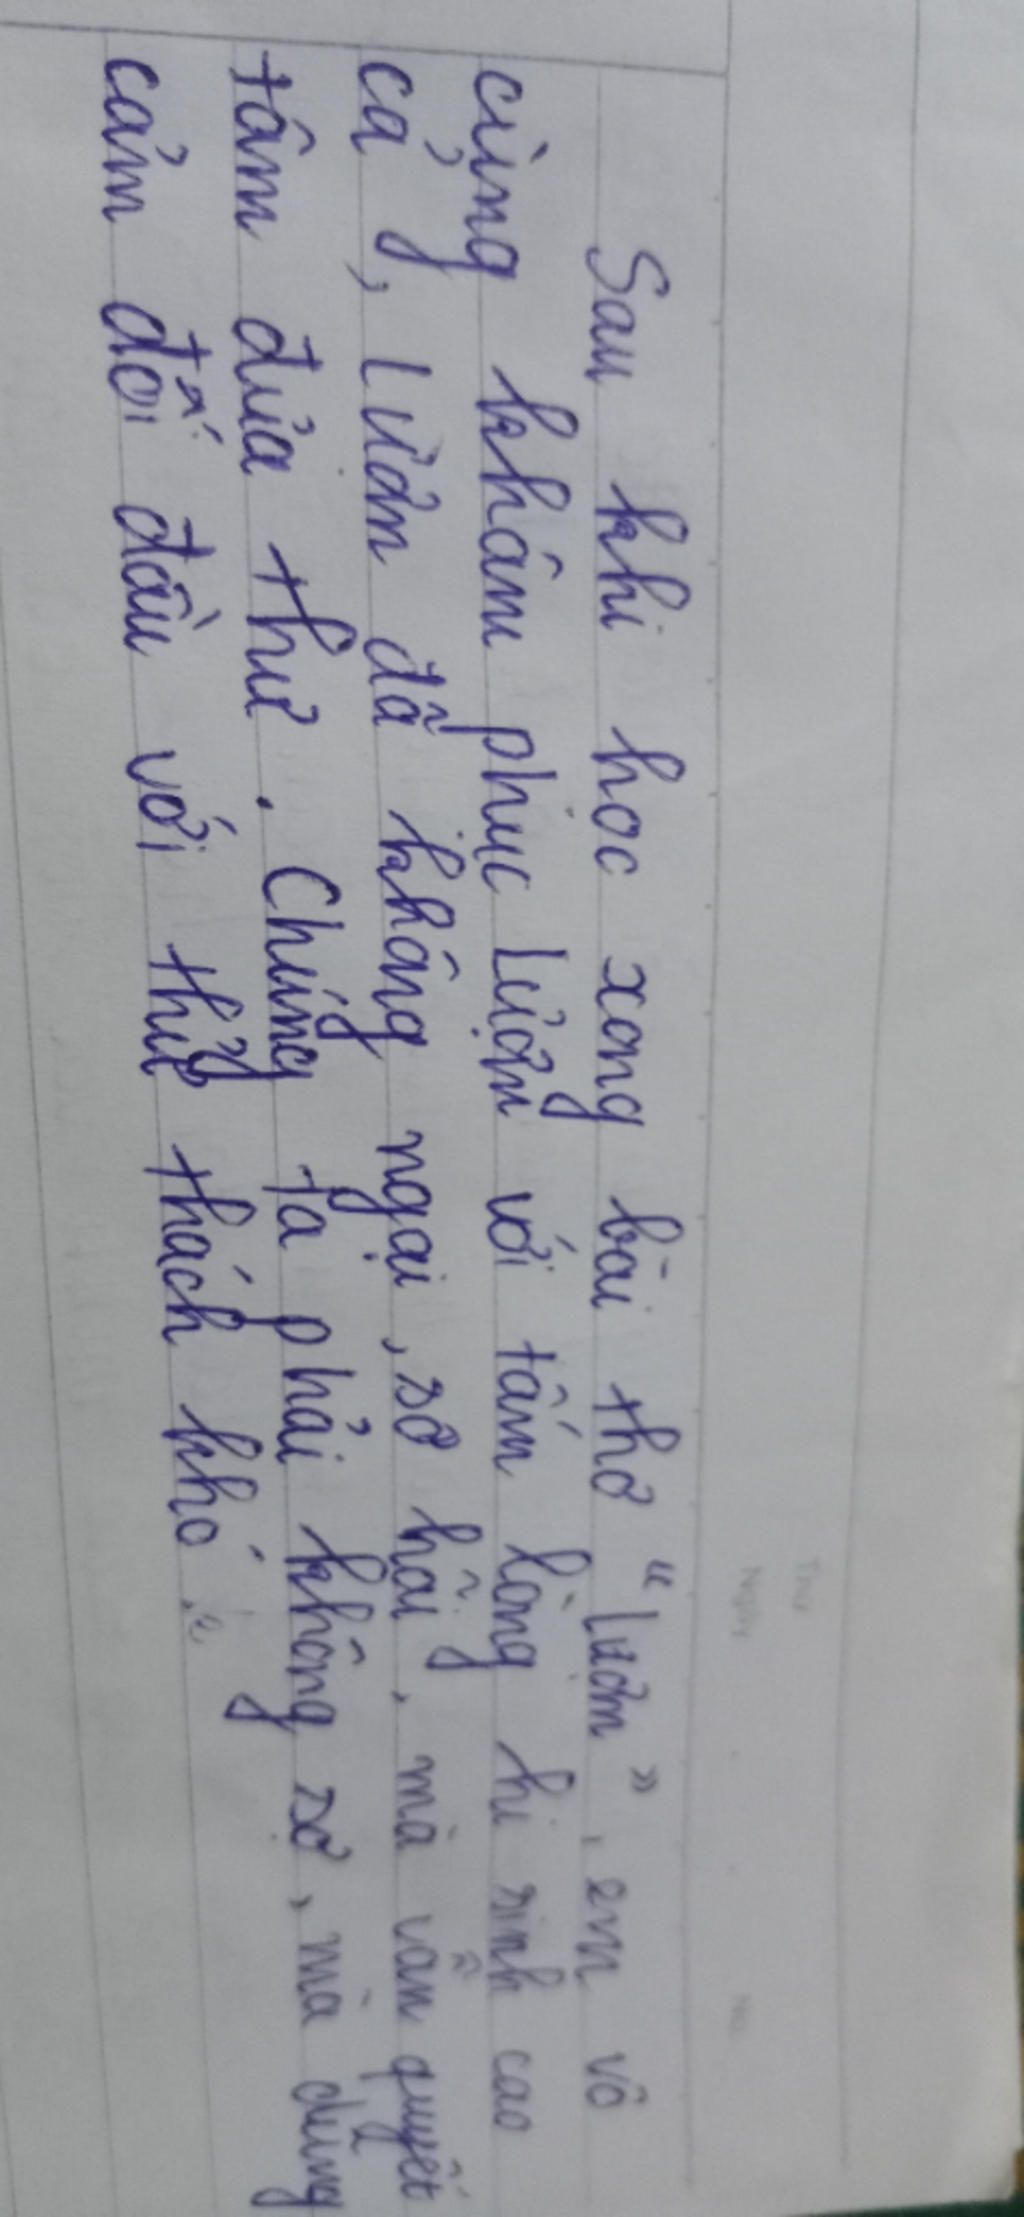 Sau khi học xong bài thơ "Lượm", em vô
cùng khâm phục Lượm với tấm lòng hi sinh cao
cả, Lượm đã không ngại, sợ hãi, mà vẫn quyết
tâm đưa thư. Chúng ta phải không sợ, mà dũng
cảm đối đầu với thử thách khó.